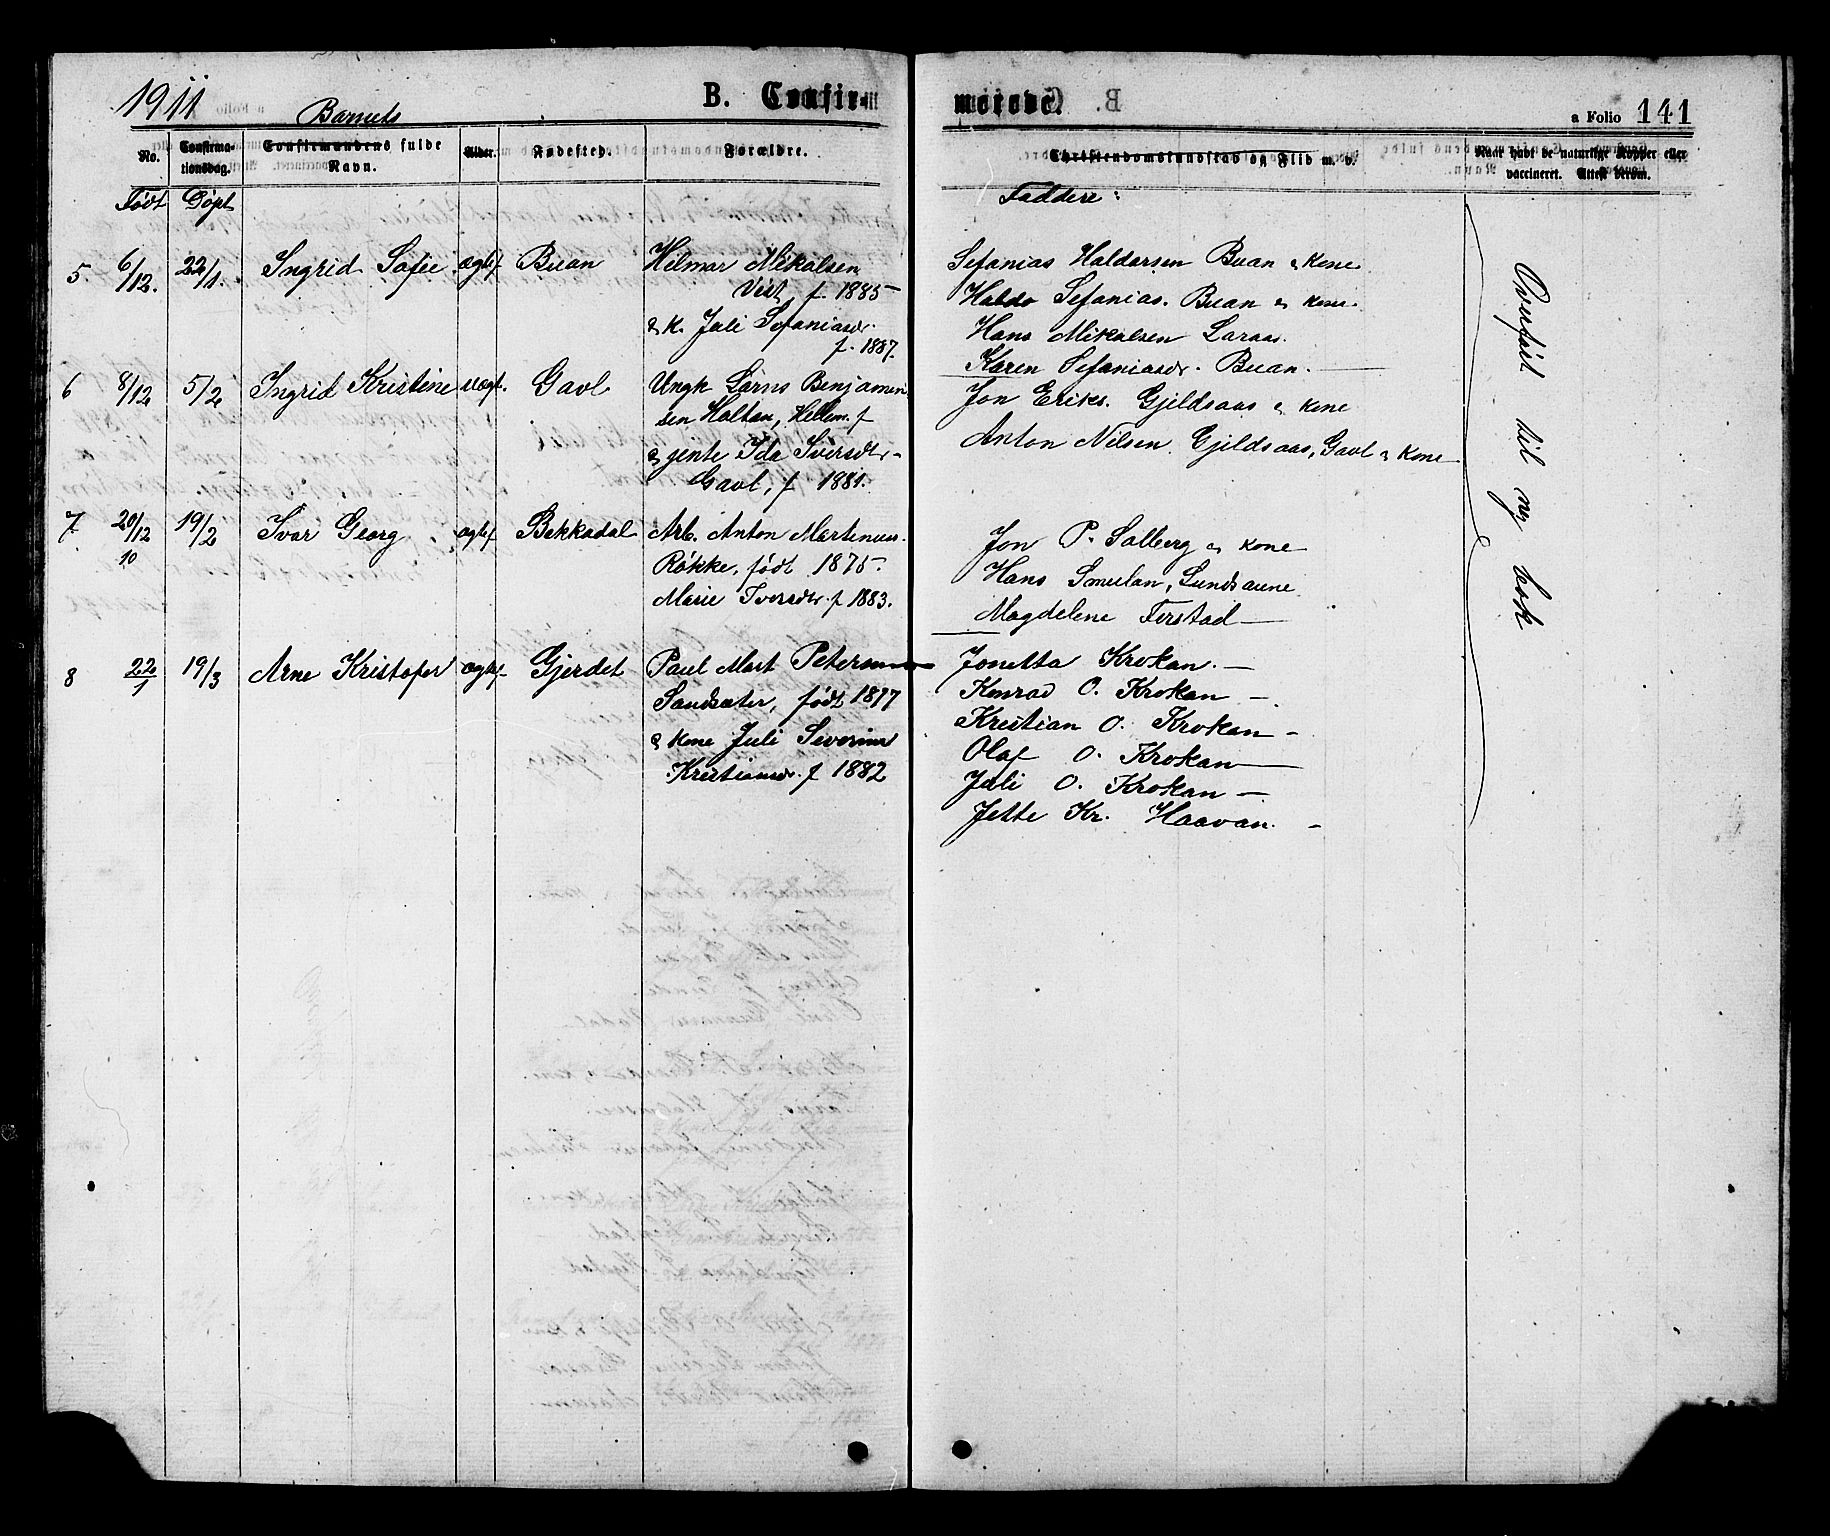 1911
B. Confirmerede.
a Folio 141
Barnets
No.
Confirmationsdag.
Confirmandens fulde Navn.
Alder.
Fødested.
Forældre.
Christendomskundskab og Flid m. v.
Naar havt de naturlige Kopper eller vaccineret. Attest derom.
Født
Døpt
Faddere:
5 6/12. 22/1. Ingrid Sofie ægtef Buan Hilmar Mikalsen
Vist f. 1885 -
& K. Juli Sefaniasdr.
f. 1887.
Sefanias Haldorsen Buan & Kone
Haldo Sefanias. Buan & Kone.
Hans Mikalsen Laraas.
Karen Sefaniasdr. Buan.
6 8/12 5/2 Ingrid Kristine uægt. Gavl Ungk Lorns Benjamin
sen Holtan, Hellem. f
& jente Ida Iversdtr -
Gavl, f 1881.
Jon Eriks. Gjeldsaas & Kone
Anton Nilsen Gjeldsaas, Gavl & Kone
7 20/12 10 19/2 Ivar Georg ægtef Bekkadal Arb. Anton Martinus
Røkke, født 1875 -
Marie Iversdtr. f 1883.
Jon P. Solberg & Kone
Hans Smulan, Lundsaune
Magdelene Ferstad
8 22/1 19/3 Arne Kristofer ægtef Gjerdet Paul Mart Petersen
Sandsæter, født 1877
& Kone Juli Severine
Kristiansdr. f 1882
Jonetta Krokan. -
Konrad O. Krokan -
Kristian O. Krokan -
Olaf O. Krokan
Juli O. Krokan -
Jette Kr. Haavan. -
Overført til ny bok